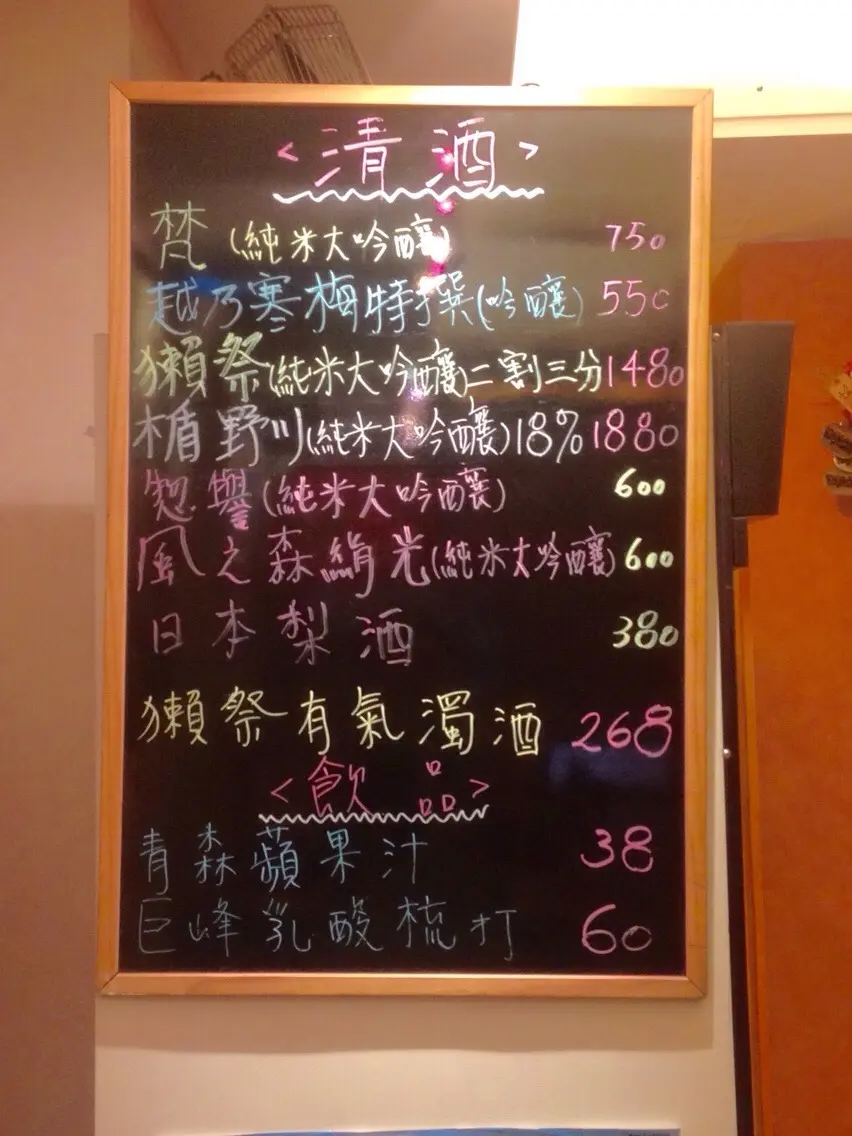 <清酒>
梵 (純米大吟釀) 750
越乃寒梅特撰(吟釀) 550
獺祭(純米大吟釀)二割三分 1480
楯野川(純米大吟釀)18% 1880
惣譽(純米大吟釀) 600
風之森絹光(純米大吟釀) 600
日本梨酒 380
獺祭有氣濁酒 268
<飲品>
青森蘋果汁 38
巨峰乳酸梳打 60